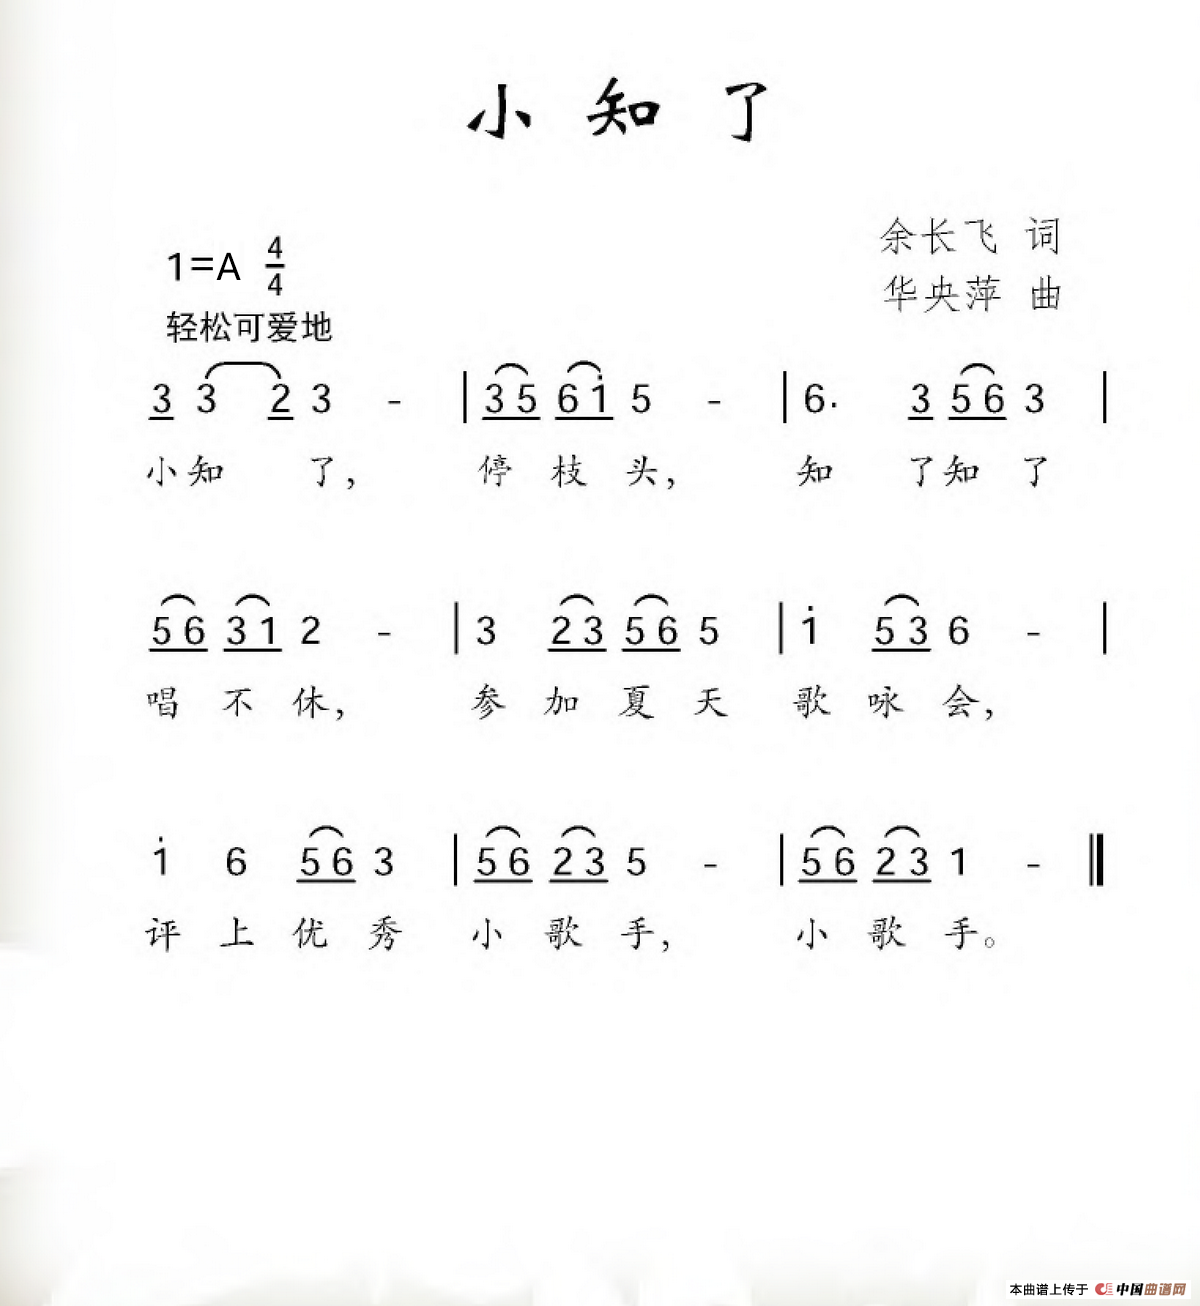 小知了
余长飞 词
1=A 4/4
华央萍 曲
轻松可爱地
3 3 2 3 - | 3 5 6 1̇ 5 - | 6. 3 5 6 3 |
小知 了， 停 枝 头， 知 了知 了
5 6 3 1 2 - | 3 2 3 5 6 5 | 1̇ 5 3 6 - |
唱 不 休， 参 加 夏 天 歌 咏 会，
1̇ 6 5 6 3 | 5 6 2 3 5 - | 5 6 2 3 1 - ‖
评 上 优 秀 小 歌 手， 小 歌 手。
本曲谱上传于 中国曲谱网